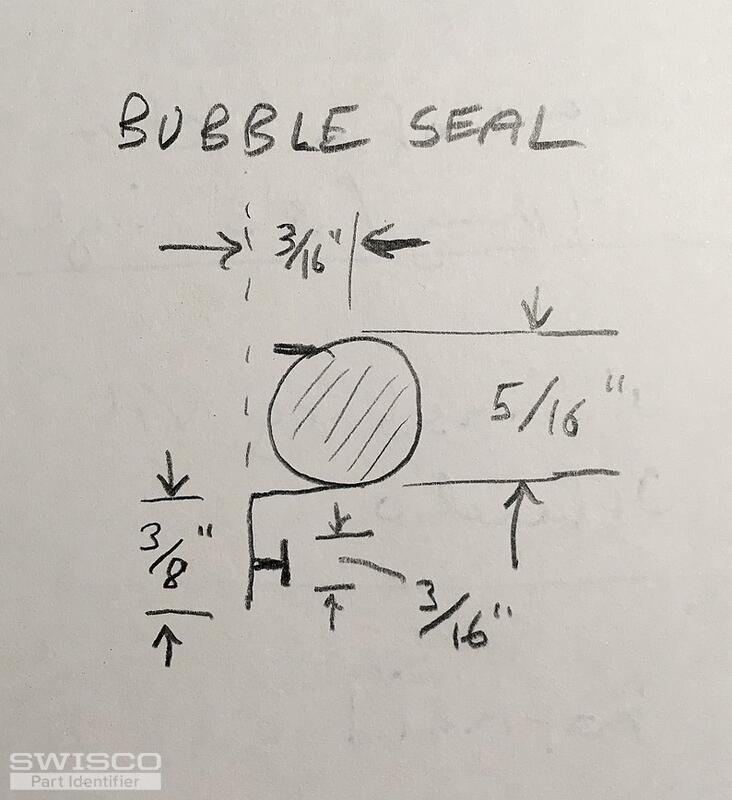 BUBBLE SEAL
3/16"
5/16"
3/8"
3/16"
SWISCO
Part Identifier